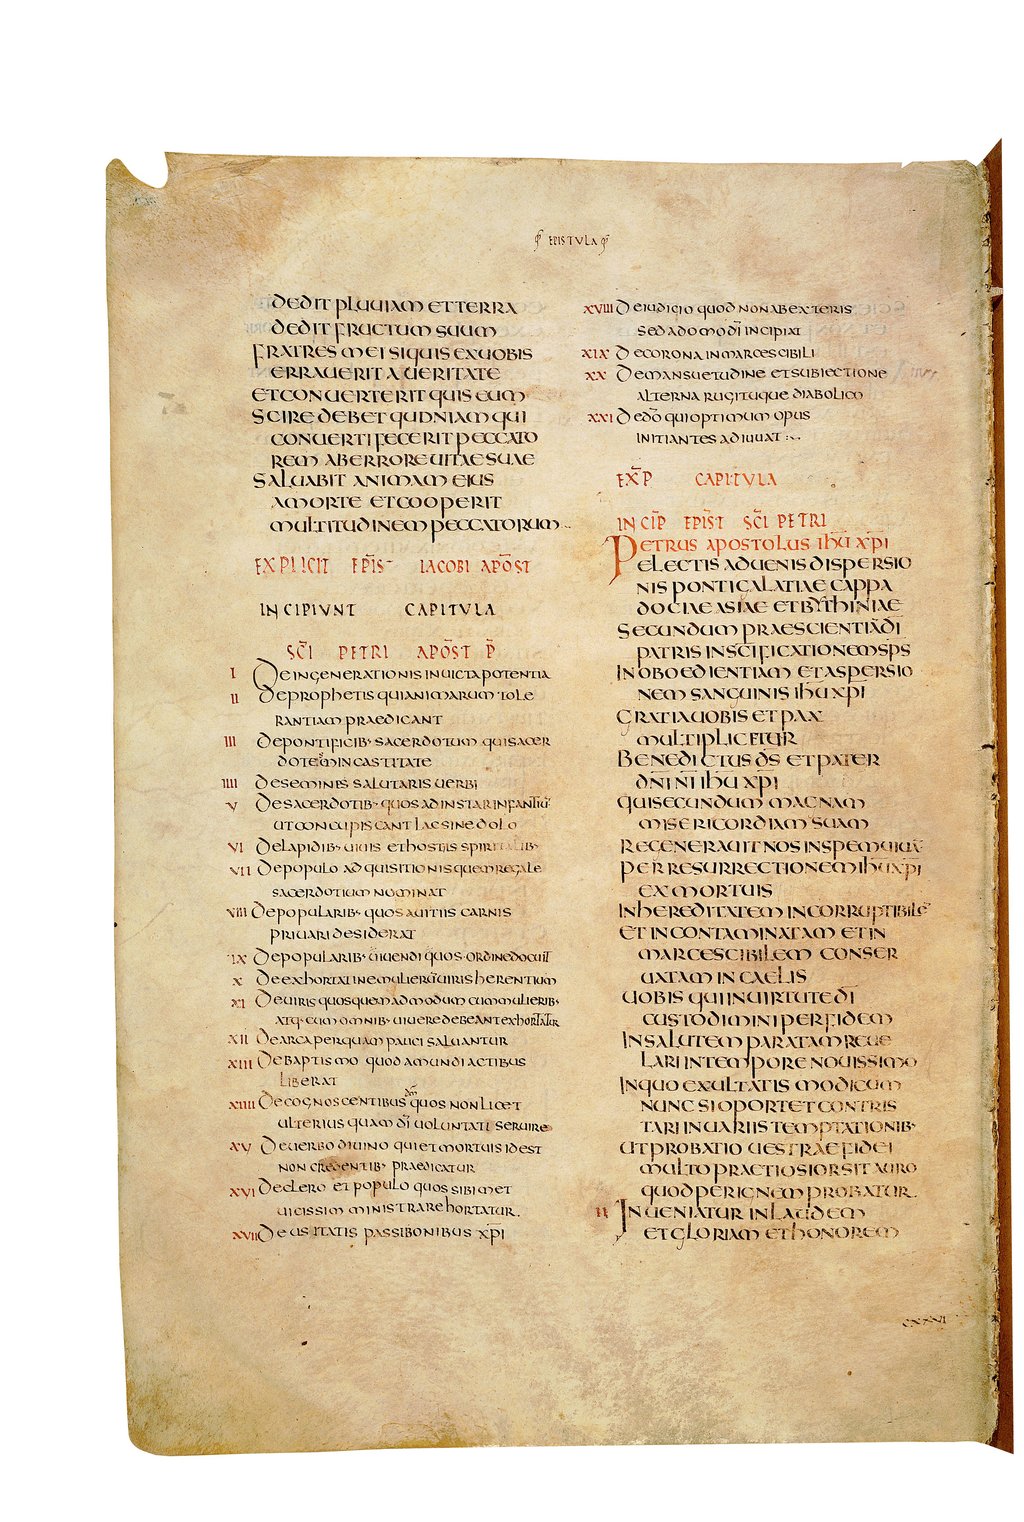 EPISTULA
DEDIT PLUUIAM ET TERRA
DEDIT FRUCTUM SUUM
FRATRES MEI SI QUIS EX UOBIS
ERRAUERIT A UERITATE
ET CONUERTERIT QUIS EUM
SCIRE DEBET QUONIAM QUI
CONUERTI FECERIT PECCATO
REM AB ERRORE UITAE SUAE
SALUABIT ANIMAM EIUS
A MORTE ET COOPERIT
MULTITUDINEM PECCATORUM
EXPLICIT EPIS̅T IACOBI APO̅ST
INCIPIUNT CAPITULA
SC̅I PETRI APO̅ST P̅
I DE INGENERATIONIS INUICTA POTENTIA
II DE PROPHETIS QUI ANIMARUM TOLE
RANTIAM PRAEDICANT
III DE PONTIFICIB· SACERDOTUM QUI SACER
DOTEM IN CASTITATE
IIII DE SEMINE SALUTARIS UERBI
V DE SACERDOTIB· QUOS AD INSTAR INFANTIU̅
UT CONCUPISCANT LAC SINE DOLO
VI DE LAPIDIB· UIUIS ET HOSTIIS SPIRITALIB·
VII DE POPULO ADQUISITIONIS QUEM REGALE
SACERDOTIUM NOMINAT
VIII DE POPULARIB· QUOS A UITIIS CARNIS
PRIUARI DESIDERAT
IX DE POPULARIB· UIUENDI QUOS ORDINE DOCUIT
X DE EXHORTATIONE MULIERU̅ UIRIS HERENTIUM
XI DE UIRIS QUOS QUEMADMODUM CUM MULIERIB·
ATQ· CUM OMNIB· UIUERE DEBEANT EXHORTATUR
XII DE ARCA PER QUAM PAUCI SALUANTUR
XIII DE BAPTISMO QUOD A MUNDI ACTIBUS
LIBERAT
XIIII DE COGNOSCENTIBUS D̅M̅ QUOS NON LICET
ULTERIUS QUAM D̅I UOLUNTATI SERUIRE
XV DE UERBO DIUINO QUI ET MORTUIS ID EST
NON CREDENTIB· PRAEDICATUR
XVI DE CLERO ET POPULO QUOS SIBIMET
UICISSIM MINISTRARE HORTATUR.
XVII DE USITATIS PASSIBONIBUS XP̅I
XVIII DE IUDICIO QUOD NON AB EXTERIS
SED A DOMO D̅I INCIPIAT
XIX DE CORONA INMARCESCIBILI
XX DE MANSUETUDINE ET SUBIECTIONE
ALTERNA RUGITUQUE DIABOLICO
XXI DE D̅O QUI OPTIMUM OPUS
INITIANTES ADIUUAT
EX̅P CAPITULA
INCI̅P EPI̅ST SC̅I PETRI
PETRUS APOSTOLUS IHU̅ XP̅I
ELECTIS ADUENIS DISPERSIO
NIS PONTI GALATIAE CAPPA
DOCIAE ASIAE ET BYTHINIAE
SECUNDUM PRAESCIENTIA̅ D̅I
PATRIS IN SC̅IFICATIONEM SP̅S
IN OBOEDIENTIAM ET ASPERSIO
NEM SANGUINIS IHU̅ XP̅I
GRATIA UOBIS ET PAX
MULTIPLICETUR
BENEDICTUS D̅S ET PATER
DN̅I N̅I IHU̅ XP̅I
QUI SECUNDUM MAGNAM
MISERICORDIAM SUAM
REGENERAUIT NOS IN SPEM UIUA̅
PER RESURRECTIONEM IHU̅ XP̅I
EX MORTUIS
IN HEREDITATEM INCORRUPTIBILE̅
ET INCONTAMINATAM ET IN
MARCESCIBILEM CONSER
UATAM IN CAELIS
UOBIS QUI IN UIRTUTE D̅I
CUSTODIMINI PER FIDEM
IN SALUTEM PARATAM REUE
LARI IN TEMPORE NOUISSIMO
IN QUO EXULTATIS MODICUM
NUNC SI OPORTET CONTRIS
TARI IN UARIIS TEMPTATIONIB·
UT PROBATIO UESTRAE FIDEI
MULTO PRAETIOSIOR SIT AURO
QUOD PER IGNEM PROBATUR.
II INUENIATUR IN LAUDEM
ET GLORIAM ET HONOREM